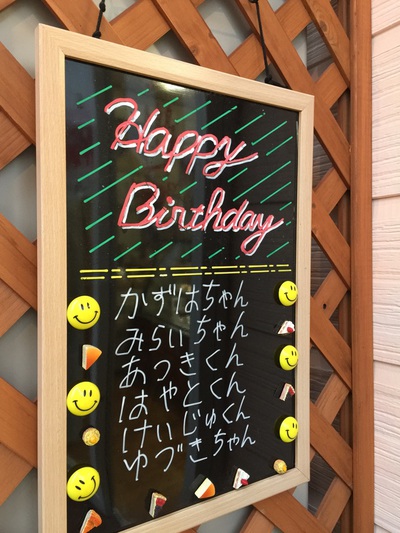 Happy
Birthday
かずはちゃん
みらいちゃん
あつきくん
はやとくん
けいじゅくん
ゆづきちゃん